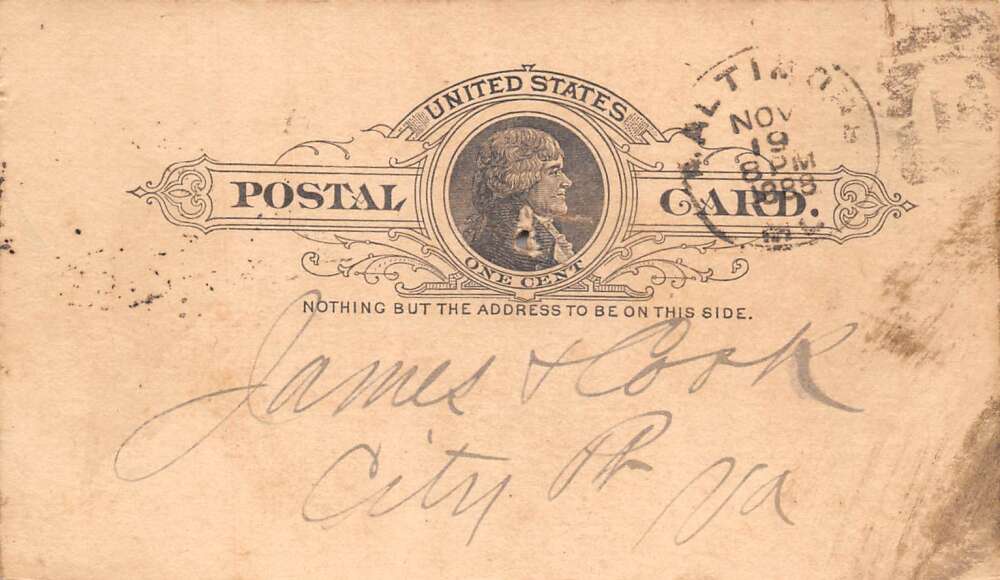 UNITED STATES
POSTAL CARD.
ONE CENT
NOTHING BUT THE ADDRESS TO BE ON THIS SIDE.
BALTIMORE
NOV
19
8PM
1888
MD
James & Cook
City Pt Va